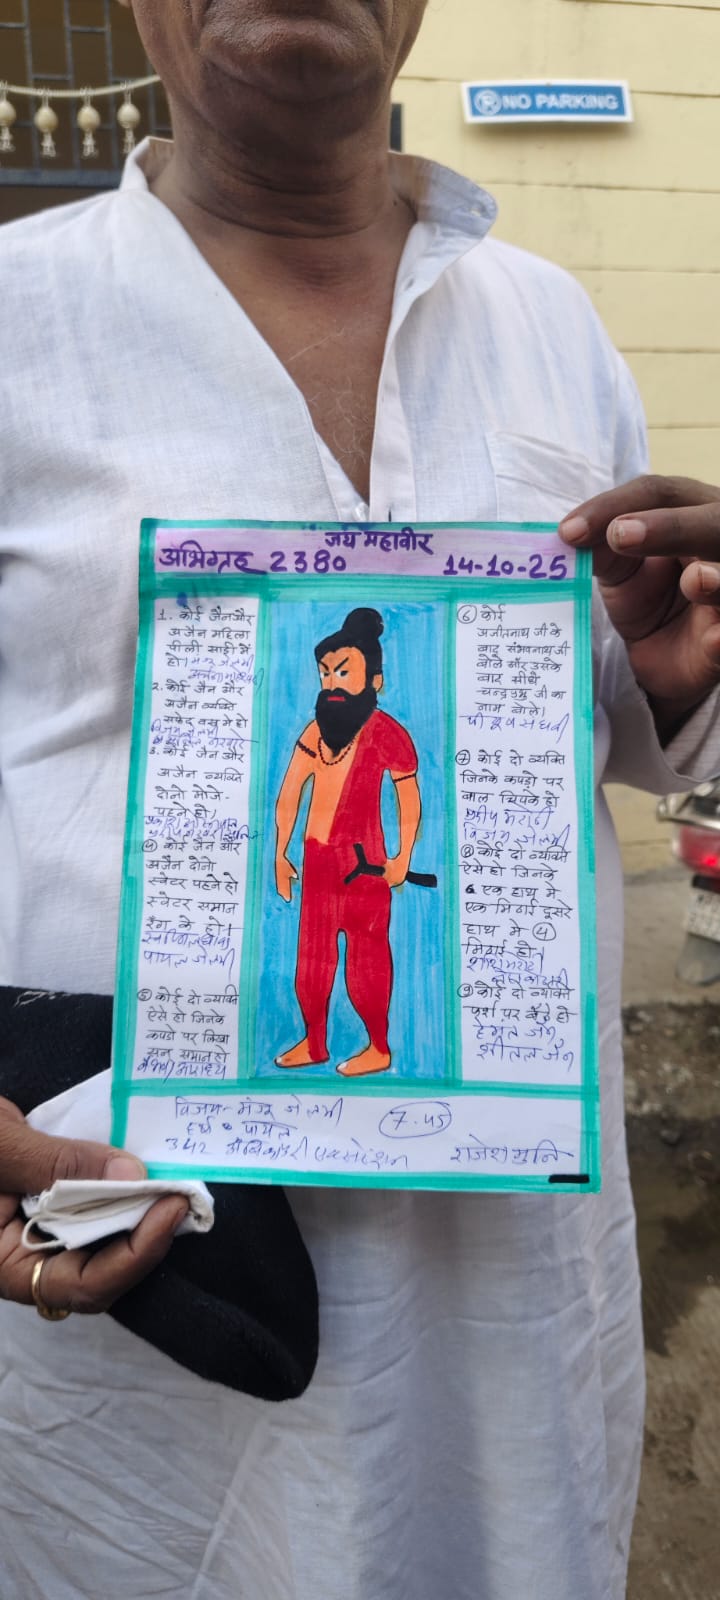 NO PARKING
जय महावीर
अभिग्रह 2380
14-10-25
1. कोई जैन और
अजैन महिला
पीली साड़ी में
हो।
2. कोई जैन और
अजैन व्यक्ति
सफेद वस्त्र में हो
3. कोई जैन और
अजैन व्यक्ति
दोनो मोजे-
पहने हो।
④ कोई जैन और
अजैन दोनो
स्वेटर पहने हो
स्वेटर समान
रंग के हो।
पायल जेलमी
⑤ कोई दो व्यक्ति
ऐसे हो जिनके
कपडो पर लिखा
समान हो
⑥ कोई
अजीतनाथ जी के
बाद संभवनाथ जी
बोले और उसके
बाद सीधे
चन्द्रप्रभु जी का
नाम बोले।
⑦ कोई दो व्यक्ति
जिनके कपड़ो पर
बाल चिपके हो
विजय जेलमी
⑧ कोई दो व्यक्ति
ऐसे हो जिनके
एक हाथ मे
एक मिठाई दूसरे
हाथ मे ④
मिठाई हो।
⑨ कोई दो व्यक्ति
फर्श पर बैठे हो
हेमंत जैन
शीतल जैन
विजय-मंजू जेलमी
7.45
पायल
342
राजेश मुनि